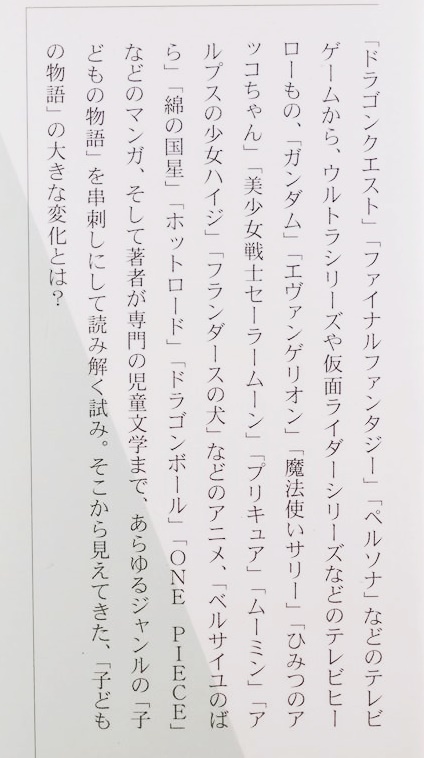 「ドラゴンクエスト」「ファイナルファンタジー」「ペルソナ」などのテレビ
ゲームから、ウルトラシリーズや仮面ライダーシリーズなどのテレビヒー
ローもの、「ガンダム」「エヴァンゲリオン」「魔法使いサリー」「ひみつのア
ッコちゃん」「美少女戦士セーラームーン」「プリキュア」「ムーミン」「ア
ルプスの少女ハイジ」「フランダースの犬」などのアニメ、「ベルサイユのば
ら」「綿の国星」「ホットロード」「ドラゴンボール」「ONE PIECE」
などのマンガ、そして著者が専門の児童文学まで、あらゆるジャンルの「子
どもの物語」を串刺しにして読み解く試み。そこから見えてきた、「子ども
の物語」の大きな変化とは?